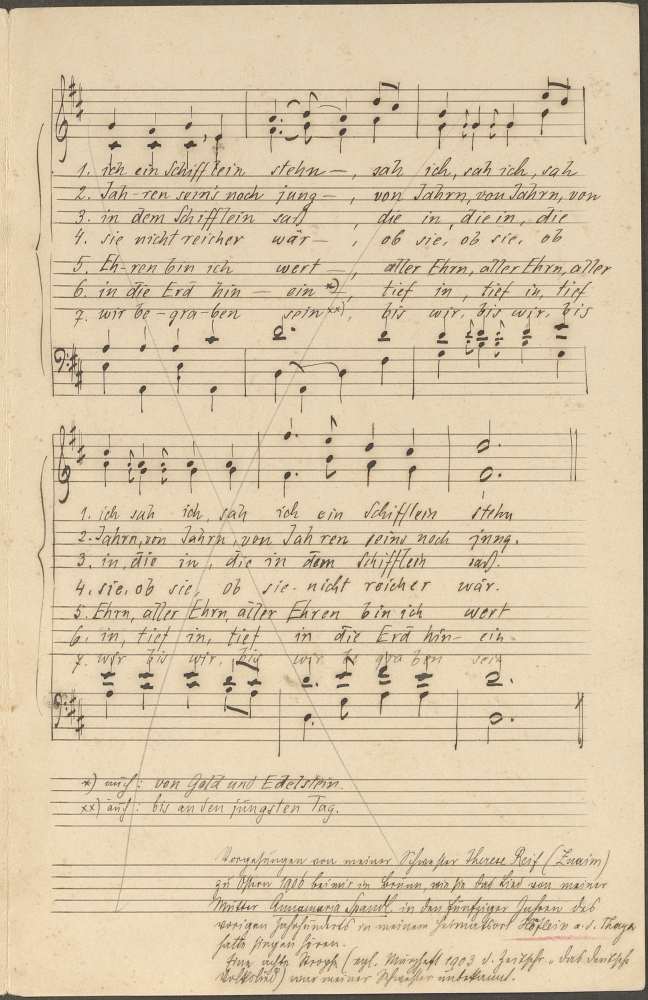 1. ich ein Schifflein stehn —, sah ich, sah ich, sah
2. Jah-ren sein's noch jung —, von Jahrn, von Jahrn, von
3. in dem Schifflein saß, die in, die in, die
4. sie nicht reicher wär —, ob sie, ob sie, ob
5. Eh-ren bin ich wert —, aller Ehrn, aller Ehrn, aller
6. in die Erd hin — ein *) —, tief in, tief in, tief
7. wir be-gra-ben sein xx), bis wir, bis wir, bis
1. ich sah ich, sah ich ein Schifflein stehn
2. Jahrn, von Jahrn, von Jahren seins noch jung.
3. in, die in, die in dem Schifflein saß.
4. sie, ob sie, ob sie nicht reicher wär.
5. Ehrn, aller Ehrn aller Ehren bin ich wert
6. in, tief in, tief in die Erd hin- ein.
7. wir bis wir, bis wir be gra ben sein
*) auch: von Gold und Edelstein.
xx) auch: bis an den jüngsten Tag.
Vorgesungen von meiner Schwester Therese Reif (Znaim)
zu Ostern 1906 bei mir in Brünn, wie sie das Lied von meiner
Mutter Annamaria Spandl. in den Fünfziger Jahren des
vorigen Jahrhunderts in meinem Heimatsort Höflein a. d. Thaya
hatte singen hören.
Eine achte Stroph (vgl. Märzheft 1903 d. Zeitschr. "das deutsche
Volkslied") war meiner Schwester unbekannt.